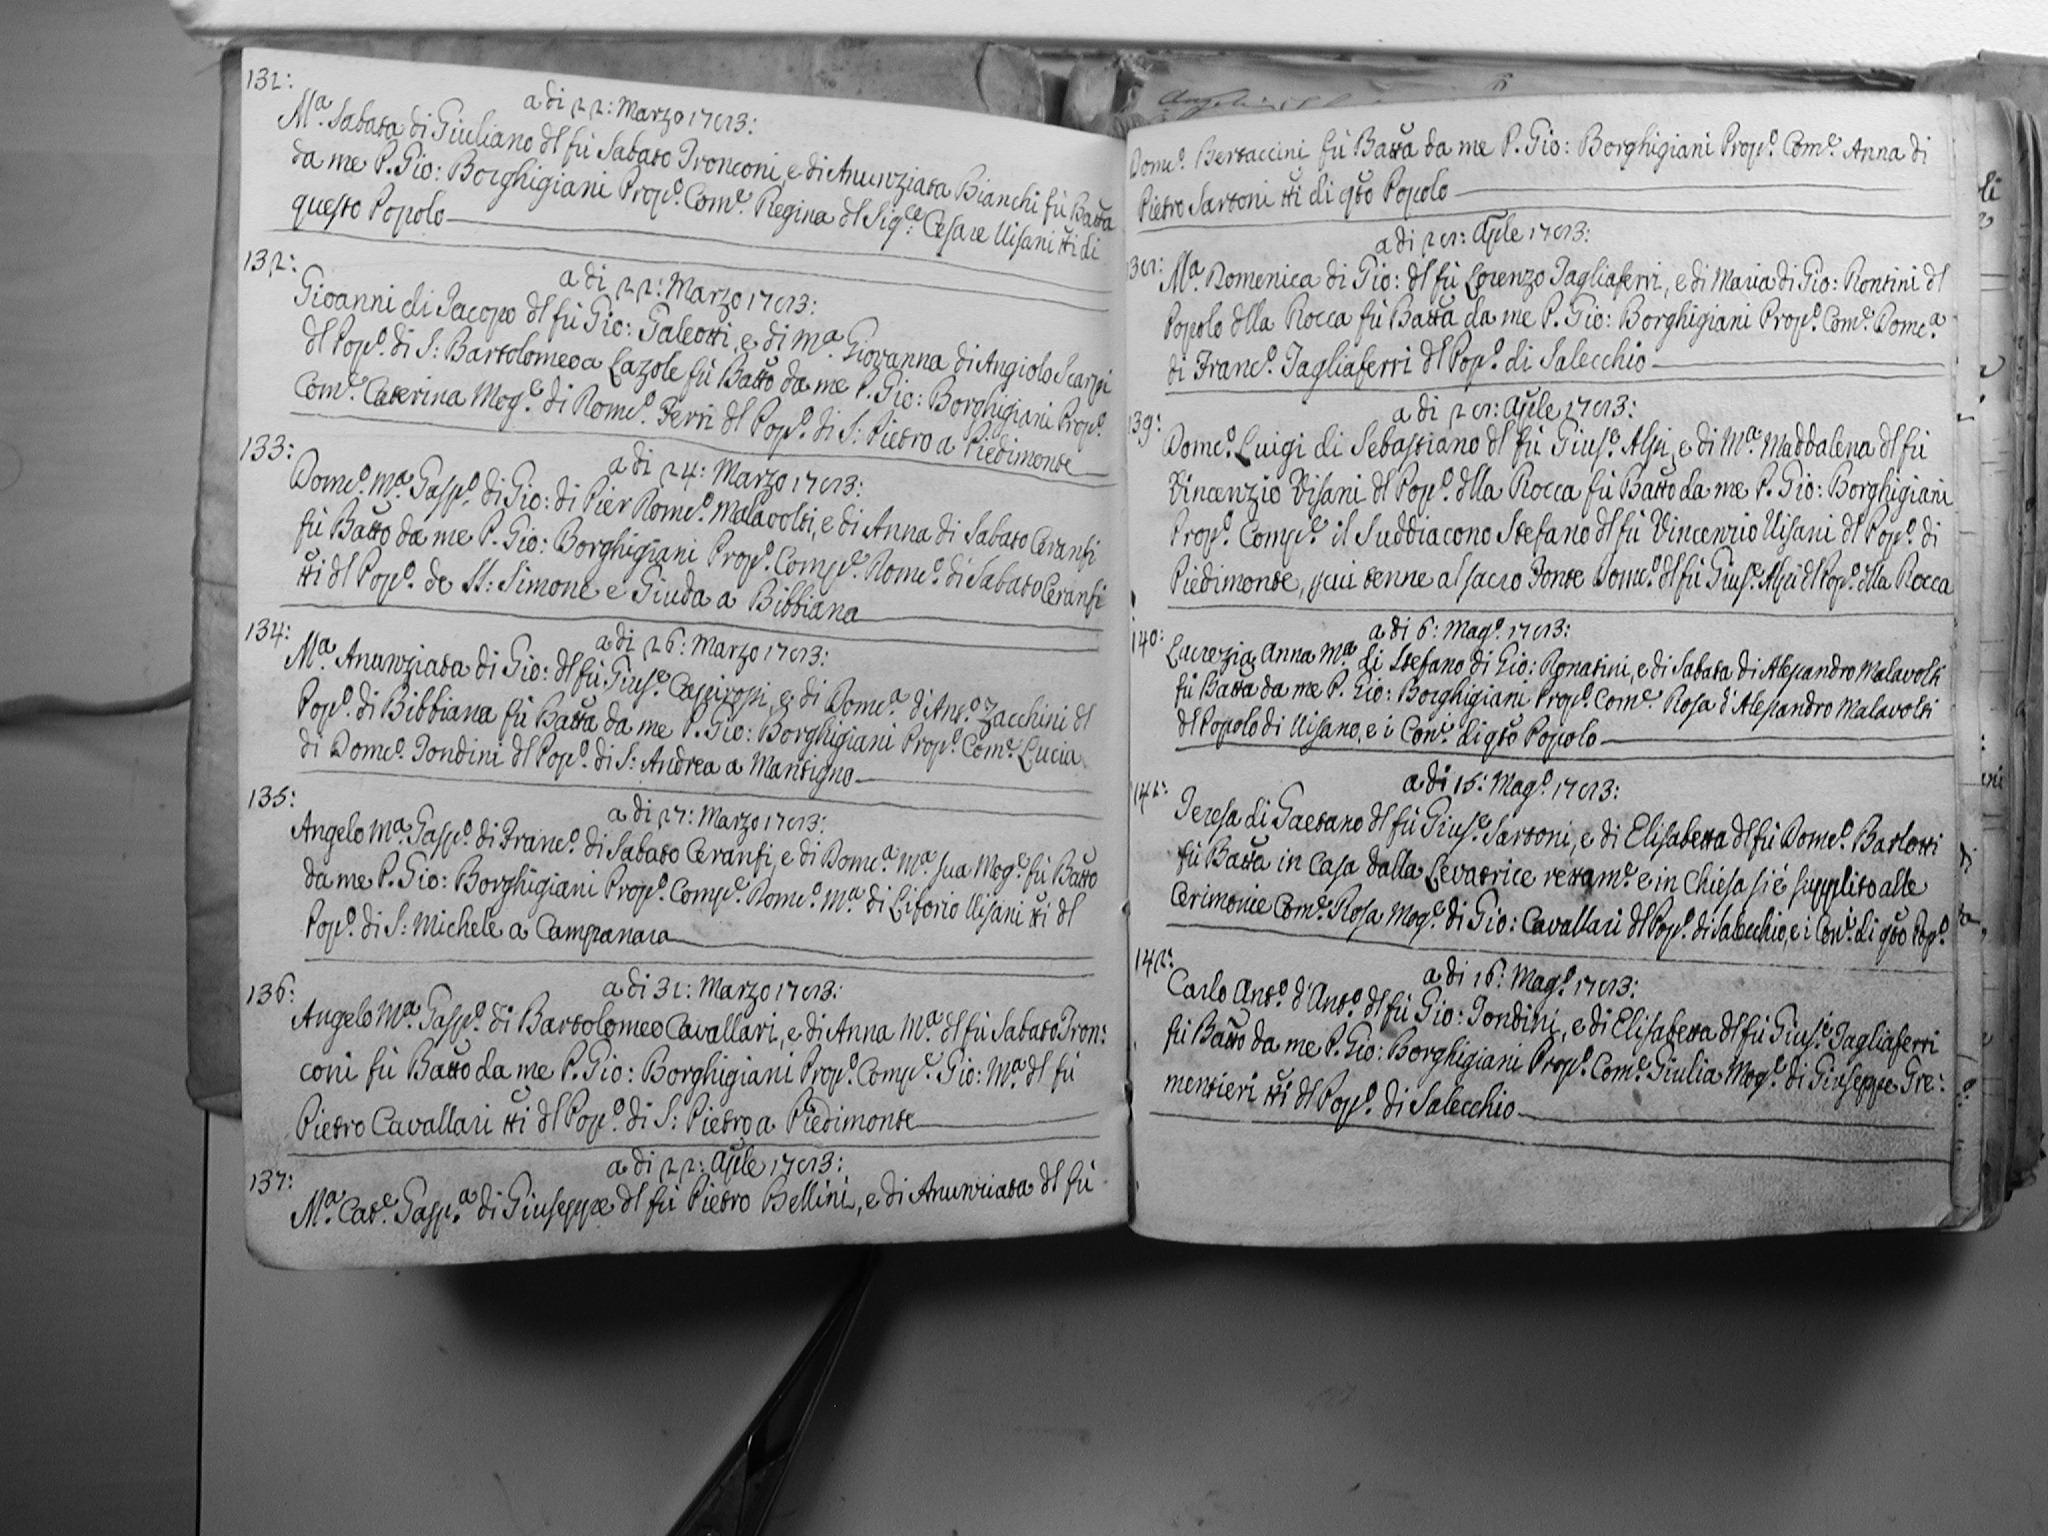 131:
a di 22: Marzo 1783:
Mª. Sabata di Giuliano dl fù Sabato Tronconi, e di Anunziata Bianchi fù Batta
da me P. Gio: Borghigiani Propº. Comᵉ. Regina dl Sigᶜᵉ: Cesare Visani tti di
questo Popolo
132:
a di 22: Marzo 1783:
Gioanni di Jacopo dl fù Gio: Galeotti, e di Mª Giovanna di Angiolo Scarpi
dl Popº. di S: Bartolomeo a Lazole fù Batto da me P. Gio: Borghigiani Propº.
Comᵉ. Caterina Mogᵉ. di Domᶜº. Ferri dl Popº. di S: Pietro a Piedimonte
133:
a di 24: Marzo 1783:
Domᶜº. Mª. Gaspº. di Gio: di Pier Domᶜº. Malavolti, e di Anna di Sabato Ceranfi
fù Batto da me P. Gio: Borghigiani Propº. Compᵉ. Domᶜº. di Sabato Ceranfi
tti dl Popº. de SS: Simone e Giuda a Bibbiana
134:
a di 26: Marzo 1783:
Mª. Anunziata di Gio: dl fù Giusᵉ. Caspirossi, e di Domᶜª. d'Antº. Zacchini dl
Popº. di Bibbiana fù Batta da me P. Gio: Borghigiani Propº. Comᵉ. Lucia
di Domᶜº. Tondini dl Popº. di S: Andrea a Mantigno
135:
a di 27: Marzo 1783:
Angelo Mª. Gaspº. di Francº. di Sabato Ceranfi, e di Domᶜª. Mª. sua Mogᵉ. fù Batto
da me P. Gio: Borghigiani Propº. Compᵉ. Domᶜº. Mª. di Litorio Visani tti dl
Popº. di S: Michele a Campanara
136:
a di 31: Marzo 1783:
Angelo Mª. Gaspº. di Bartolomeo Cavallari, e di Anna Mª. dl fù Sabato Tron:
coni fù Batto da me P. Gio: Borghigiani Propº. Compᵉ. Gio: Mª. dl fù
Pietro Cavallari tti dl Popº. di S: Pietro a Piedimonte
137:
a di 22: Aple 1783:
Mª. Catᵉ. Gaspª. di Giuseppe dl fù Pietro Bellini, e di Anunziata dl fù
Domᶜº. Bertaccini fù Batta da me P. Gio: Borghigiani Propº. Comᵉ. Anna di
Pietro Sartoni tti di qto Popolo
138:
a di 28: Aple 1783:
Mª. Domenica di Gio: dl fù Lorenzo Tagliaferri, e di Maria di Gio: Rontini dl
Popolo dlla Rocca fù Batta da me P. Gio: Borghigiani Propº. Comᵉ. Domᶜª.
di Francº. Tagliaferri dl Popº. di Salecchio
139:
a di 28: Aple 1783:
Domᶜº. Luigi di Sebastiano dl fù Giusᵉ. Alpi, e di Mª. Maddalena dl fù
Vincenzio Visani dl Popº. dlla Rocca fù Batto da me P. Gio: Borghigiani
Propº. Compᵉ. il Suddiacono Stefano dl fù Vincenzio Visani dl Popº. di
Piedimonte, p cui tenne al sacro Fonte Domᶜº. dl fù Giusᵉ. Alpi dl Popº. dlla Rocca
140:
a di 6: Magº. 1783:
Lucrezia Anna Mª. di Stefano di Gio: Donatini, e di Sabata di Alessandro Malavolti
fù Batta da me P. Gio: Borghigiani Propº. Comᵉ. Rosa d'Alessandro Malavolti
dl Popolo di Visano, e i Conⁱ. di qto Popolo
141:
a di 15: Magº. 1783:
Teresa di Gaetano dl fù Giusᵉ. Sartoni, e di Elisabetta dl fù Domᶜº. Barlotti
fù Batta in Casa dalla Levatrice rettamᵉ. e in Chiesa si è supplito alle
Cerimonie Comᵉ. Rosa Mogᵉ. di Gio: Cavallari dl Popº. di Salecchio, e i Conⁱ. di qto Popº.
142:
a di 16: Magº. 1783:
Carlo Antº. d'Antº. dl fù Gio: Tondini, e di Elisabetta dl fù Giusᵉ. Tagliaferri
fù Batto da me P. Gio: Borghigiani Propº. Comᵉ. Giulia Mogᵉ. di Giuseppe Gre:
mentieri tti dl Popº. di Salecchio